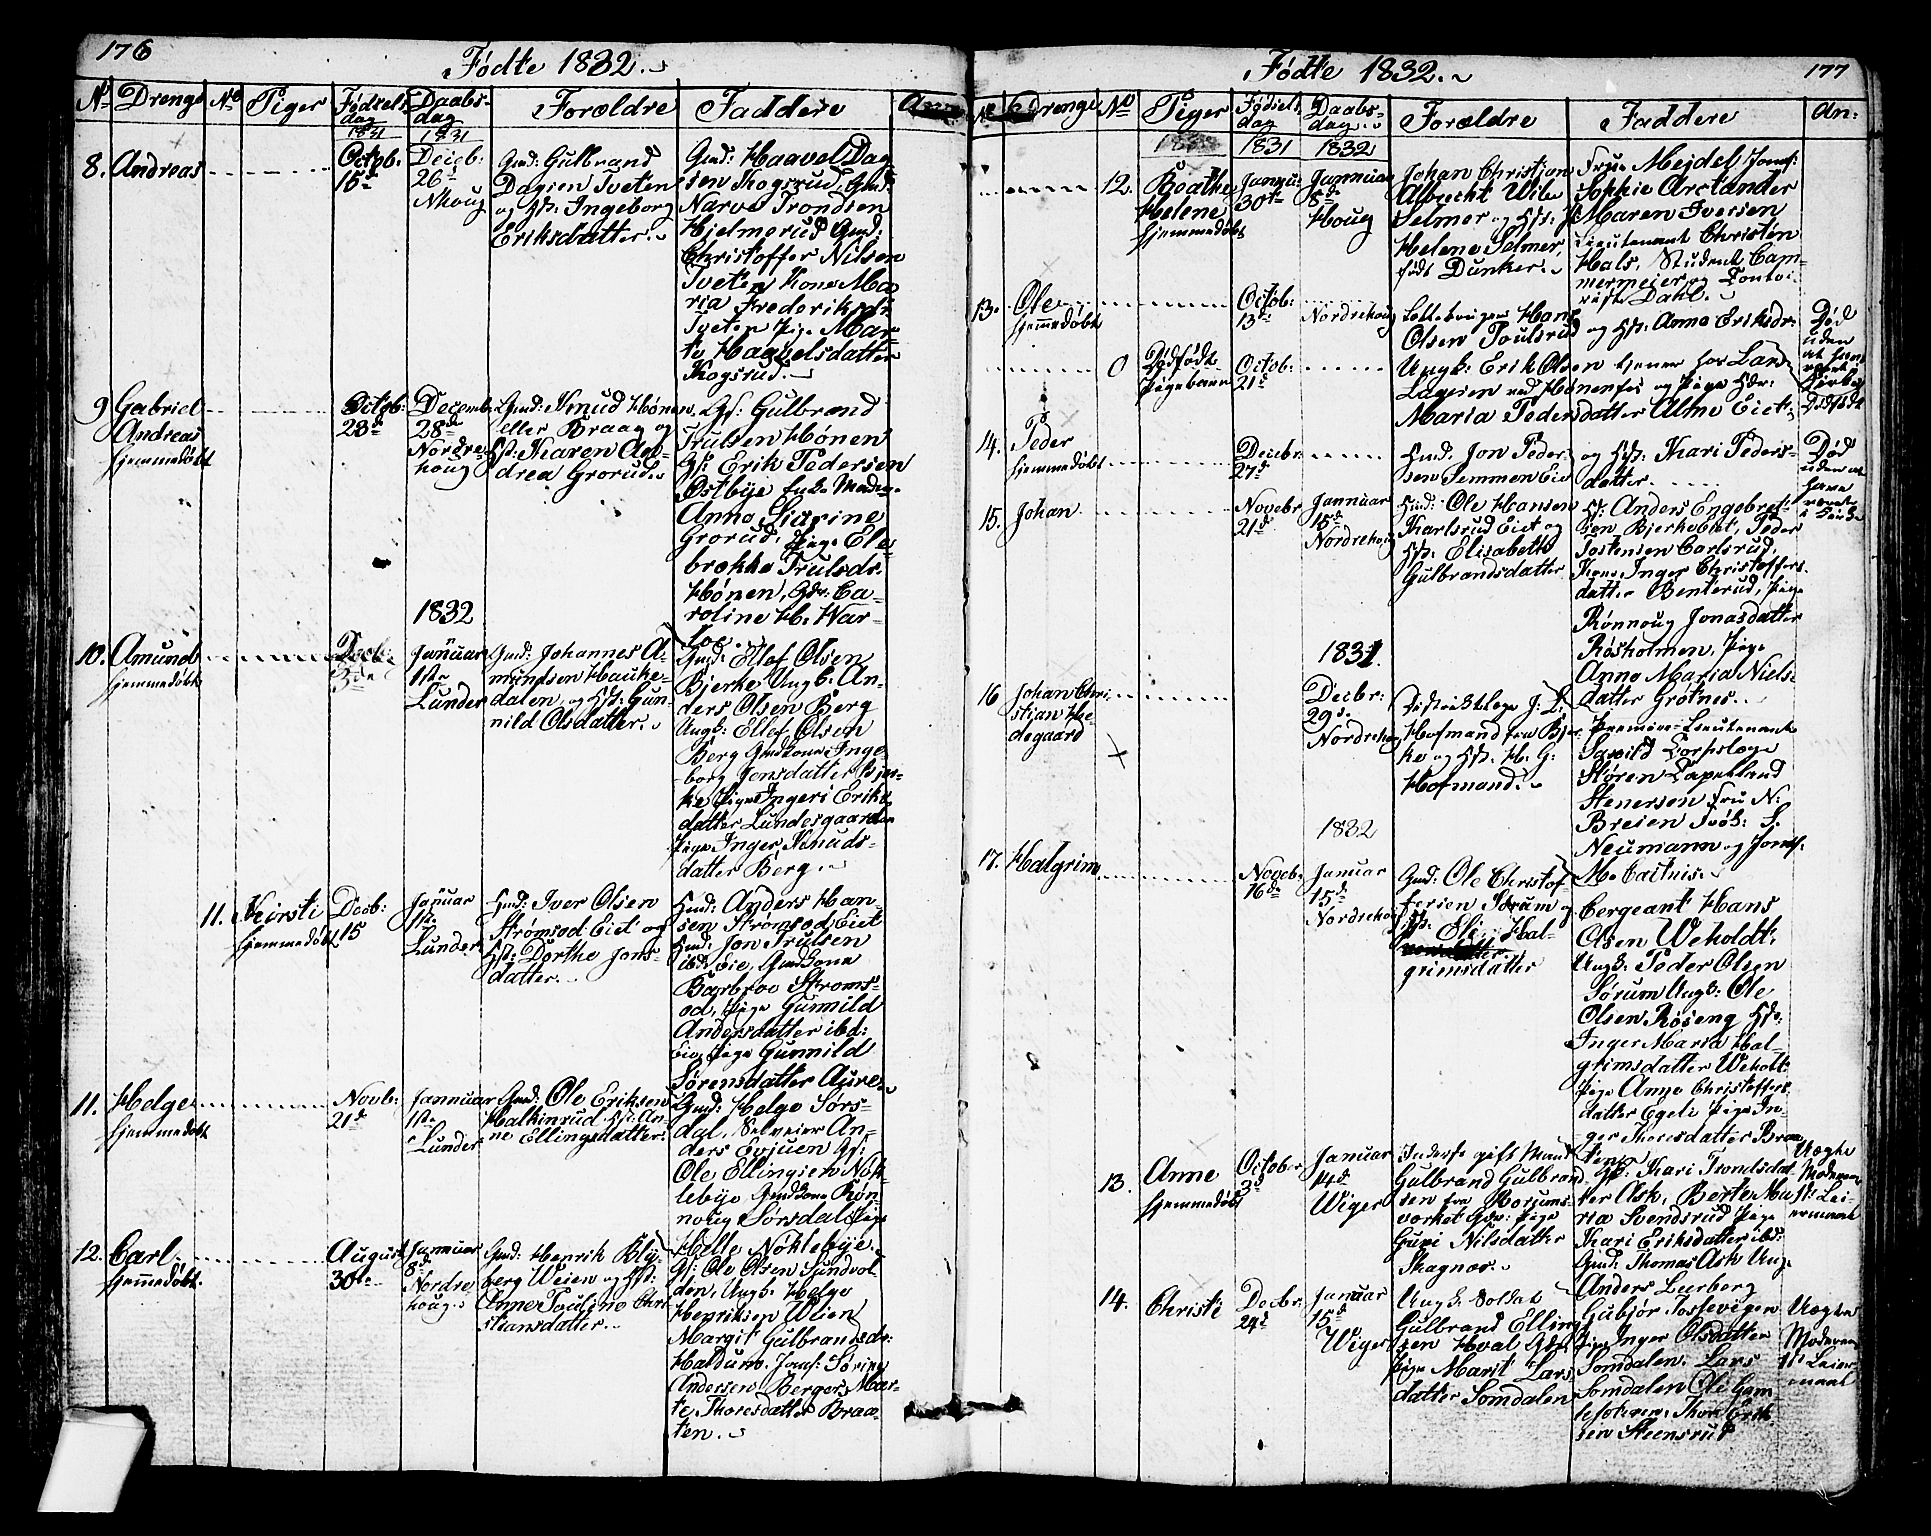 176
Fødte 1832.
No Drenge No Piger Fødsels dag Daabs- dag Forældre Faddere An
1831 1831
8. Andreas
Octob: 15d
Deceb: 26d
Gmd: Gulbrand
Dagsen Tveten
og Hst: Ingeborg
Eriksdatter.
Gmd: Haavel Dag
sen Kogsrud, Gmd:
Narve Trondsen
Hjelmerud Gmd:
Christoffer Nilsen
Tveten Kone Ma
ria Frederiksdr
Tveten Pige Mar-
te Haavelsdatter
Kogsrud.
9 Gabriel
Andreas
hjemmedøbt
Octob:
23de
Decemb:
28de
Nordre
houg
Gmd: Knud Hønen
eller Braag og
Hst: Karen An-
drea Grorud.
Gulbrand
Trulsen Hønen
Erik Pedersen
Østbye Enk. Madm.
Anne Sirine
Grorud, Pige Ele-
brekke Trulsdr.
Hønen, Gdr. Ca-
roline H. War-
loe
1832
10. Amund
hjemmedøbt
Deceb.
3de
Januar
1ste
Lunder
Gmd: Johannes A-
mundsen Hauke-
dalen, og Hst: Gun-
nild Olsdatter.
Gmd: Ellef Olsen
Bjerke Ungk: An-
ders Olsen Berg
Ungk: Ellef Olsen
Berg Gmdkone Inge-
borg Jonsdatter Bjer-
ke Pige Ingeri Eriks
datter Lundesgaarden
Pige Inger Knuds-
datter Berg.
11. Kirsti
hjemmedøbt
Decb:
15
Januar
1ste
Lunder
Hmd: Iver Olsen
Strømsod: Eiet og
Hst: Dorthe Jons-
datter.
Hmd: Anders Han-
sen Strømsod: Eiet
Hmd: Jon Trulsen
ibd: Eie, Gmdkone
Barbroe Strøms-
od, Pige Gunnild
Andersdatter ibd:
Eie, Pige Gunnild
Sørensdatter Aure.
11. Helge
hjemmedøbt
Novb:
21de
Jannuar
1ste
Lunder
Gmd: Ole Eriksen
Halkinrud Hst: An-
ne Ellingsdatter:
Gmd: Helge Sørs-
dal, Selveier An-
ders Evjuen
Ole Ellingsen Nøk-
lebye Gmdkone Røn-
noug Sørsdal Pige
Helle Nøklebye.
12. Carl
hjemmedøbt
August
30te
Jannuar
8de
Nordre
houg.
Gmd: Henrik Bly-
berg Weien og Hst:
Anne Pauline Chri-
stiansdatter.
Ole Olsen Sundvol
den, Ungk: Helge
Henriksen Wien
Margit Gulbrandsdr
Haldum, Jomf: Sørine
Andersen Berger, Mar-
te Thoresdatter Braa-
ten.
177
Fødte 1832.
No Drenge No Piger Fødsels dag Daabs- dag Forældre Faddere An:
1831 1832
12. Beathe
Helene
hjemmedøbt
30te
Jannuar
8de
Houg
Johan Christian
Albrecht Wile
Selmer og Hst:
Helene Selmer,
født Dunker.
Frue Mejdel, Jomf:
Sophie Arctander
Maren Iversen
Lieutenant Christen
Hals, Student Cam-
mermeier og Contoi-
rist Dahl.
13. Ole
hjemmedøbt
Octob:
13de
Nordrehoug
Hans
Olsen Poulsrud
og Hst: Anne Eriksdr:
Død
uden
at
0 Dødfødt
Pigebarn
Octob:
21de
Ungk: Erik Olsen tjener hos Land
ved Hønenfos og Pige
Maria Pedersdatter Alme Eiet
Dødfødt
14. Peder
hjemmedøbt
Decbr:
27de
Hmd: Jon Peder-
sen Semmen Eie
og Hst: Kari Peders-
datter
Død
uden at
have
været
15. Johan
Novebr
21de
Jannuar
15de
Nordrehoug
Hmd: Ole Hansen
Karlsrud Eiet og
Hst: Elisabeth
Gulbrandsdatter
Anders Engebret-
sen Bjerkebiet, Peder
Jostensen Carlsrud,
Kone Inger Christoffers
datter Benterud, Pige
Rønnoug Jonasdatter
Røsholmen, Pige
Anne Maria Niels-
datter Grøtnes.
1831.
16 Johan Chri-
stian He-
degaard
Decbr:
29de
Nordrehoug
Distriktslæge J: L:
Hofmand fra Bjer-
ke og Hst: H: G:
Hofmand.
Premier-Lieutenant
Sawild Corpslæge
Støren Capelland
Stenersen Fru N:
Breien S.
Neumann og Jomf.
M. Cactnis.
1832
17. Halgrim
Noveb.
16de
Januar
15de
Nordrehoug
Gmd: Ole Christof-
fersen Sørum og
Hst: Eli Hal-
grimsdatter
Cergeant Hans
Olsen Weholdt,
Ungk: Peder Olsen
Sørum Ungk: Ole
Olsen Røseng
Inger Maria Hal-
grimsdatter Weholt
Pige Anne Christoffers
datter Egeli Pige In-
ger Thoresdatter Braa
ten
13. Anne
hjemmedøbt
October
3de
Januar
14de
Wiger
gift Mand
Gulbrand Gulbrand
sen fra
værket Pige
Guri Nilsdatter
Skagnæs.
Kari Trondsdat-
ter Ask, Berte Ma-
ria Svendsrud Pige
Kari Eriksdatter ibd:
Gmd: Thomas Ask Ung.
Anders Leerberg
Uægte
Moderens
1ste Lei-
ermaal
14. Christi
Decbr
24de
Januar
15de
Wiger
Ungk. Soldat
Gulbrand Elling
sen Hval
Pige Marit Lars
datter Somdalen
Gubjør Jostevigen
Pige Inger Olsdatter
Somdalen Lars
Somdalen Ole Gam
Thor Erik-
sen Steensrud
Uægte
Moderens
1ste Leier
maal